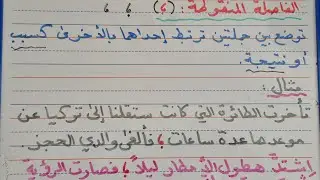 الفاصلة المنقوطة: (؛) ؛ ؛
توضع بين جملتين ترتبط إحداهما بالأخرى كسبب
أو نتيجة.
مثال:
تأخرت الطائرة التي كانت ستقلنا إلى تركيا عن
موعدها عدة ساعات؛ فألغى والدي الحجز.
اشتدَّ هطول الأمطار ليلاً؛ فصارت الرؤية